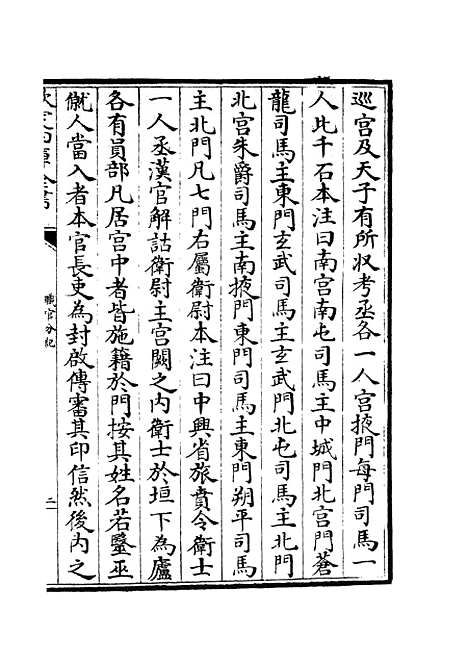 巡宫及天子有所收考丞各一人宫掖門每門司馬一
人比千石本注曰南宫南屯司馬主中城門北宫門蒼
龍司馬主東門玄武司馬主玄武門北屯司馬主北門
北宫朱爵司馬主南掖門東門司馬主東門朔平司馬
主北門凡七門右屬衛尉本注曰中興省旅賁令衛士
一人丞漢官解詁衛尉主宫闕之内衛士於垣下為廬
各有員部凡居宫中者皆施籍於門按其姓名若醫巫
僦人當入者本官長吏為封啟傳審其印信然後内之
欽定四庫全書
職官分紀
二